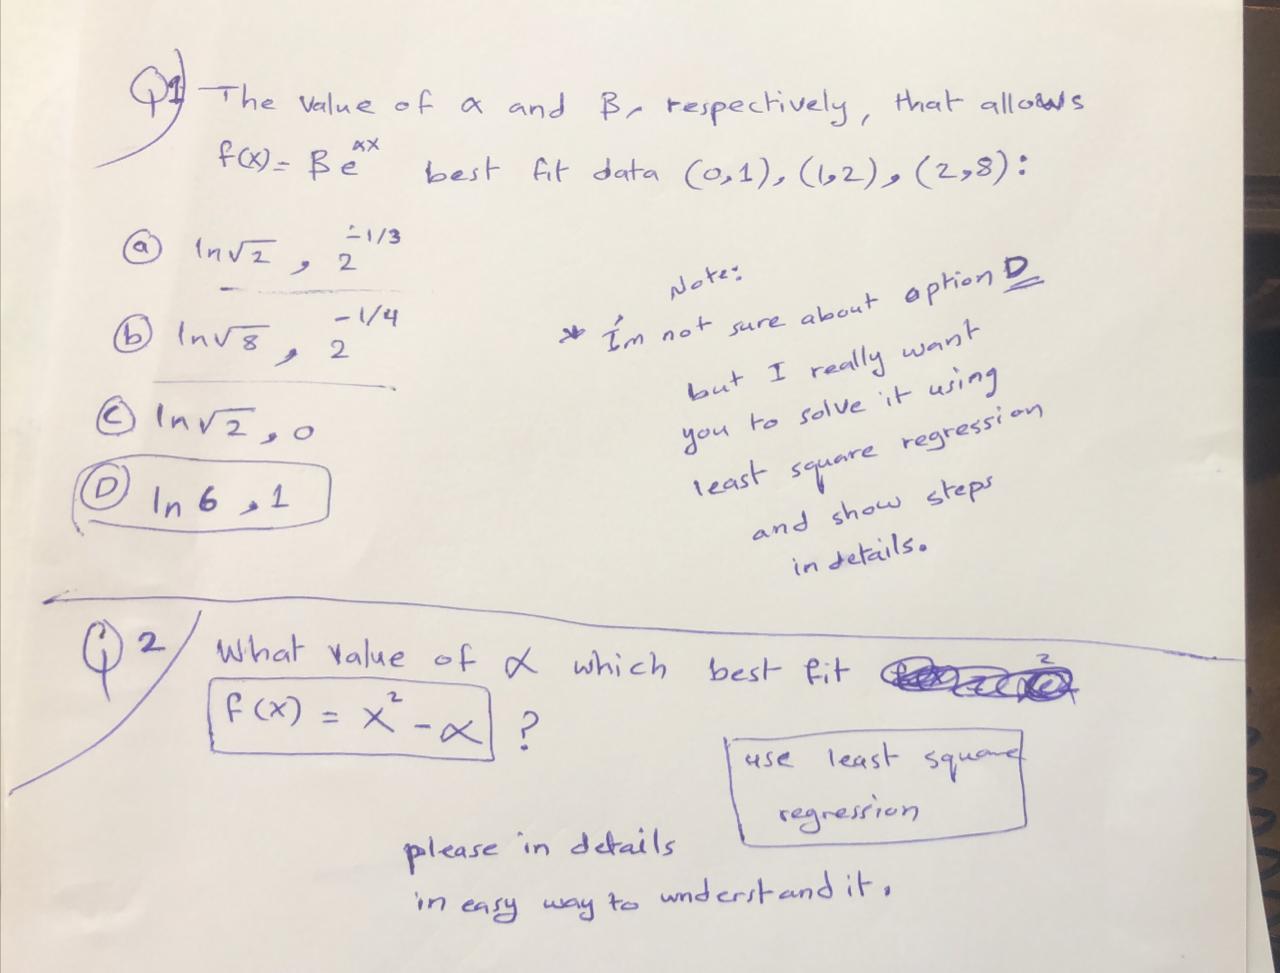 Q1 The value of α and β, respectively, that allows
f(x) = β e^αx best fit data (0,1), (1,2), (2,8):
(a) ln√2 , 2^-1/3
(b) ln√8 , 2^-1/4
(c) ln√2 , 0
(D) ln 6 , 1
Note:
* I'm not sure about option D
but I really want
you to solve it using
least square regression
and show steps
in details.
Q2 What value of α which best fit
f(x) = x² - α ?
use least square
regression
please in details
in easy way to understand it.